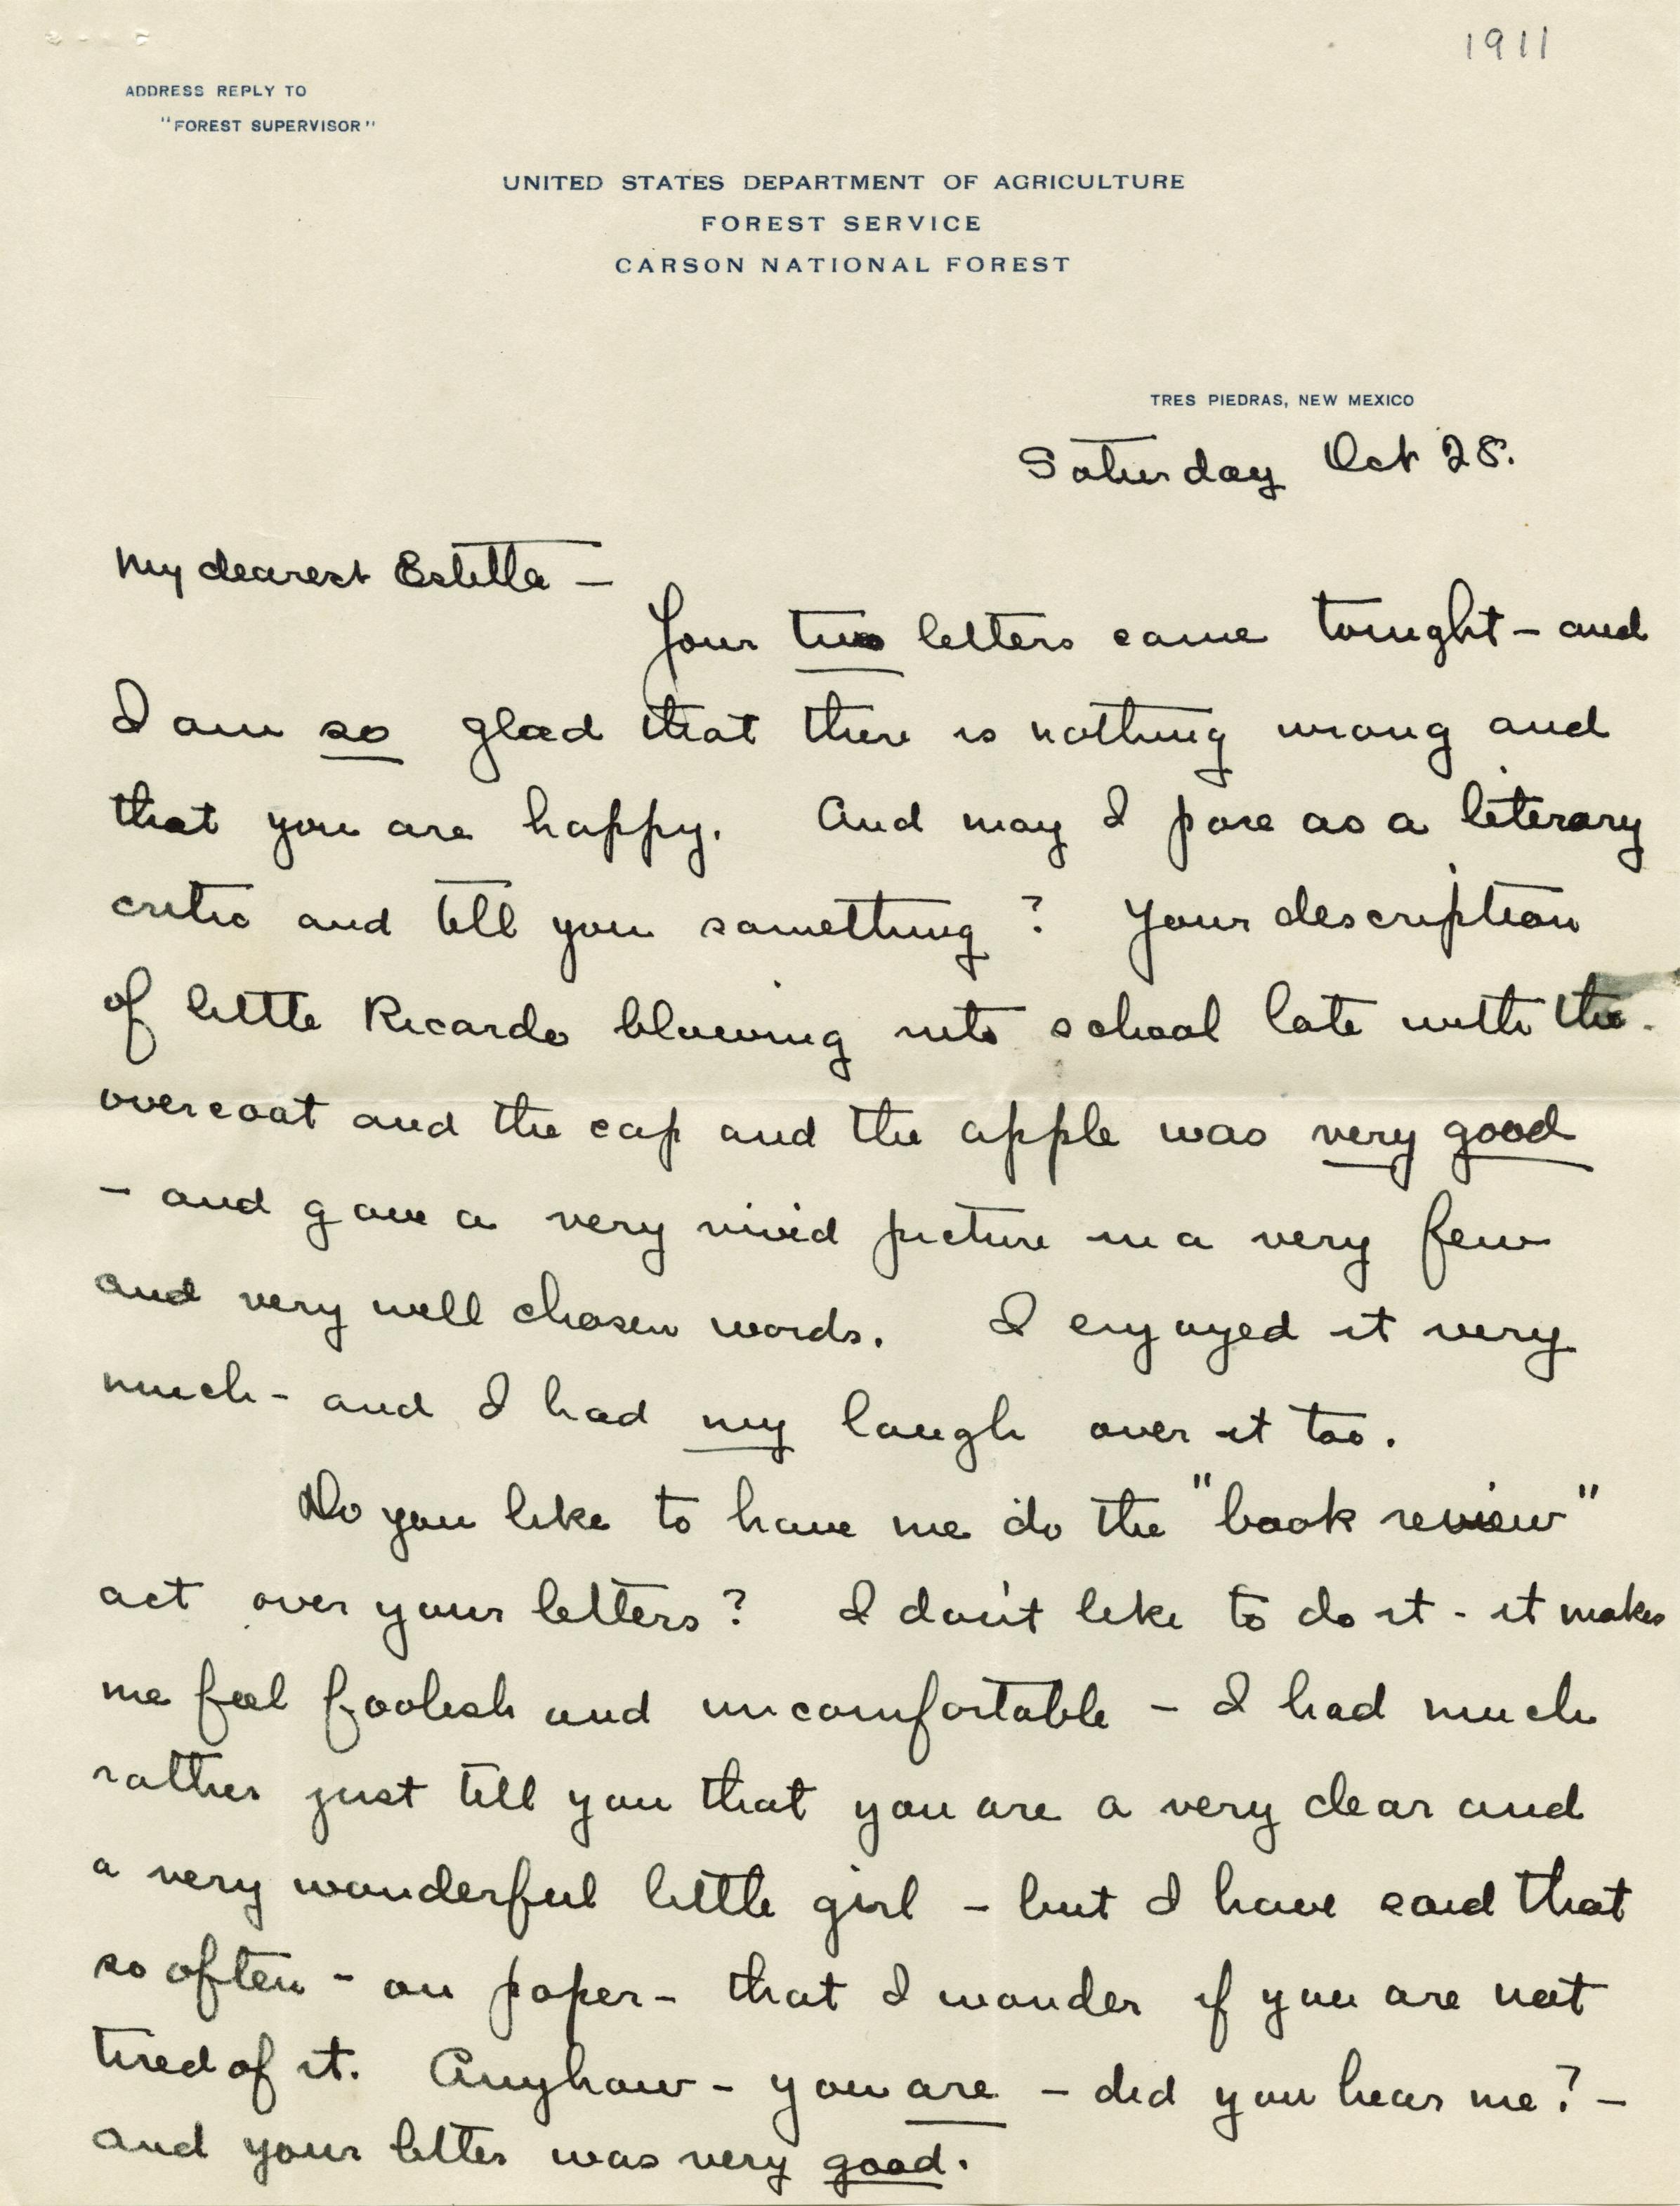 1911
ADDRESS REPLY TO
"FOREST SUPERVISOR"
UNITED STATES DEPARTMENT OF AGRICULTURE
FOREST SERVICE
CARSON NATIONAL FOREST
TRES PIEDRAS, NEW MEXICO
Saturday Oct 28.
My dearest Estella –
Your two letters came tonight – and
I am so glad that there is nothing wrong and
that you are happy. And may I pose as a literary
critic and tell you something? Your description
of little Ricardo blowing into school late with the
overcoat and the cap and the apple was very good
– and gave a very vivid picture in a very few
and very well chosen words. I enjoyed it very
much – and I had my laugh over it too.
Do you like to have me do the "book review"
act over your letters? I don't like to do it - it makes
me feel foolish and uncomfortable – I had much
rather just tell you that you are a very dear and
a very wonderful little girl – but I have said that
so often – on paper – that I wonder if you are not
tired of it. Anyhow – you are – did you hear me? –
and your letter was very good.